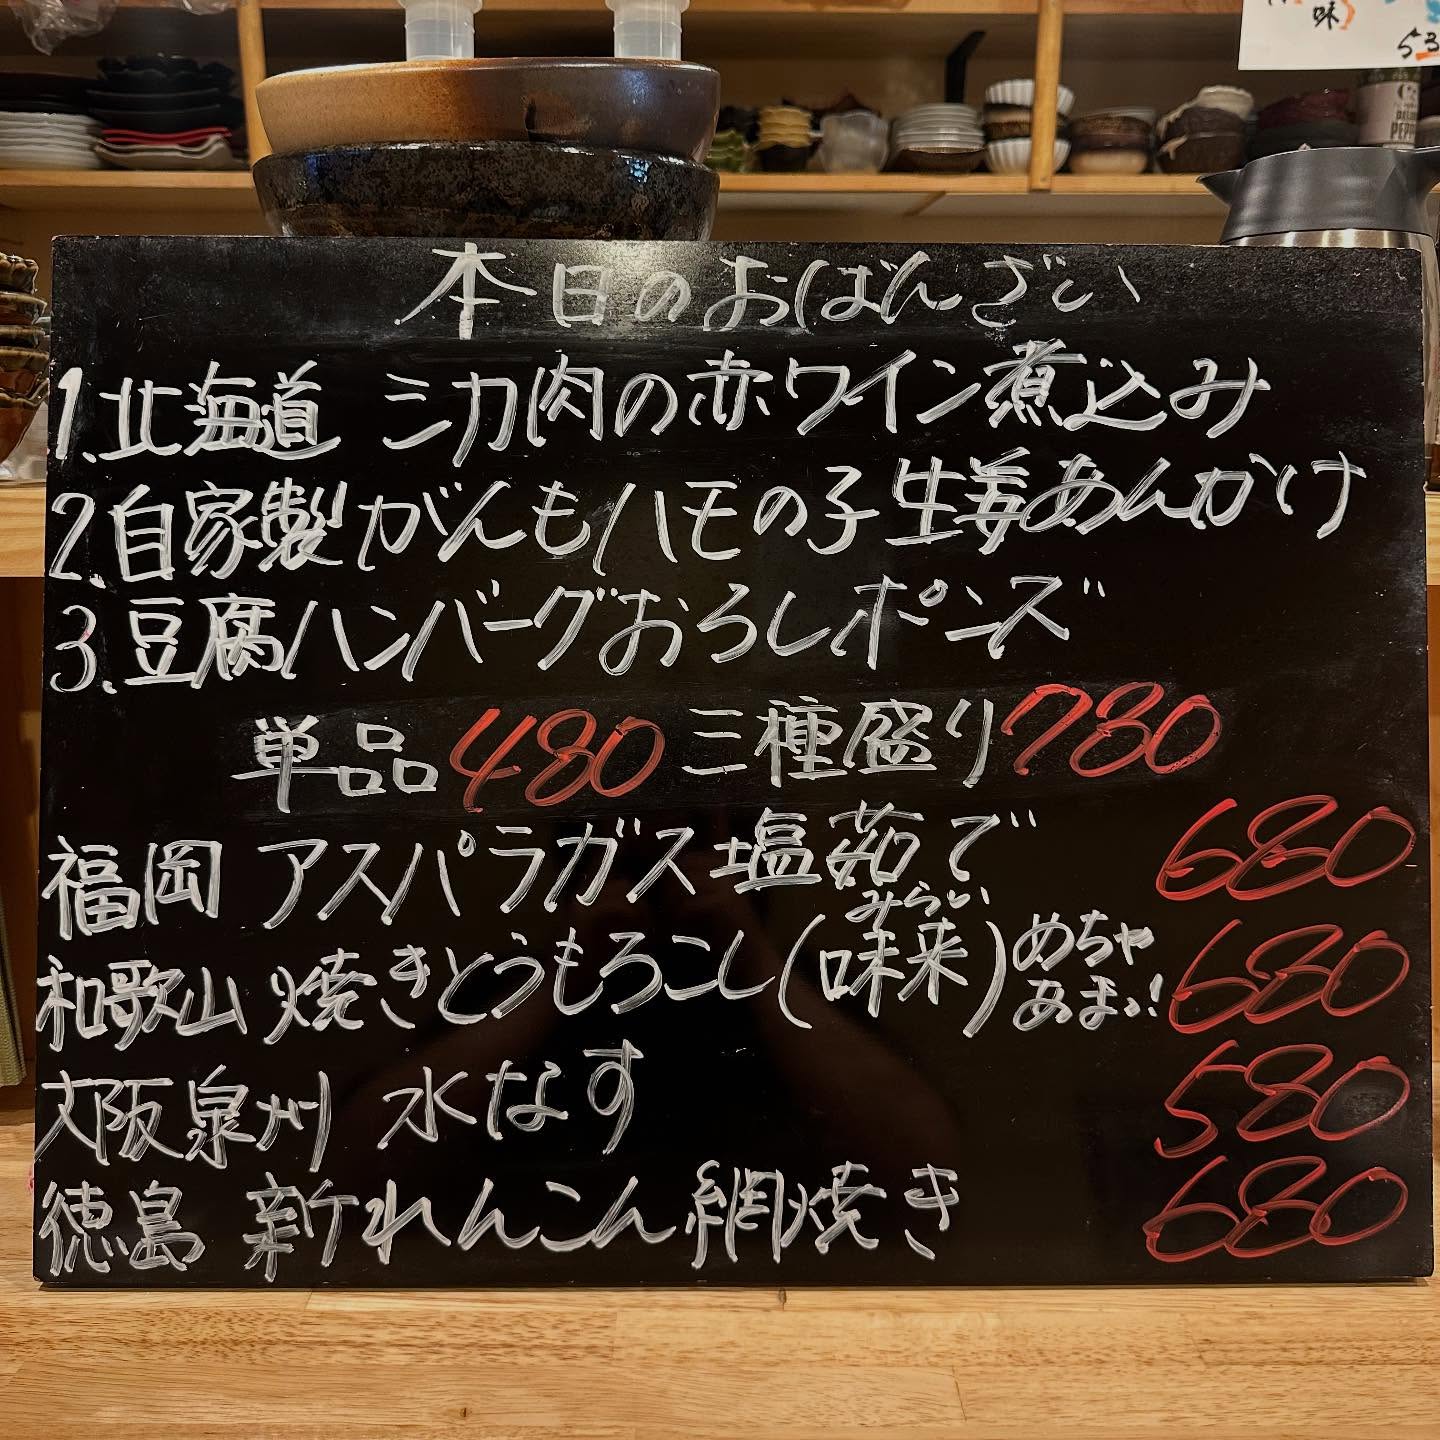 本日のおばんざい
1.北海道 シカ肉の赤ワイン煮込み
2.自家製がんもハモの子生姜あんかけ
3.豆腐ハンバーグおろしポンズ
単品480 三種盛り780
福岡 アスパラガス塩茹で 680
和歌山 焼きとうもろこし(味来)めちゃ 680
みらい
あまっ!
大阪泉州 水なす 580
徳島 新れんこん網焼き 680
味